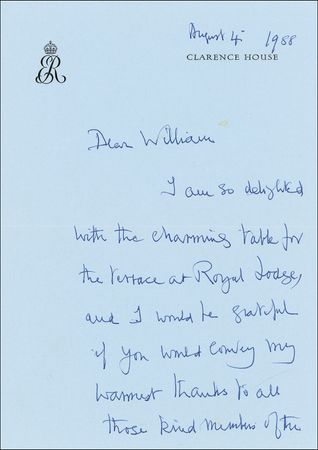 ER
August 4 1988
CLARENCE HOUSE
Dear William
I am so delighted
with the charming table for
the terrace at Royal Lodge,
and I would be grateful
if you would convey my
warmest thanks to all
those kind members of the